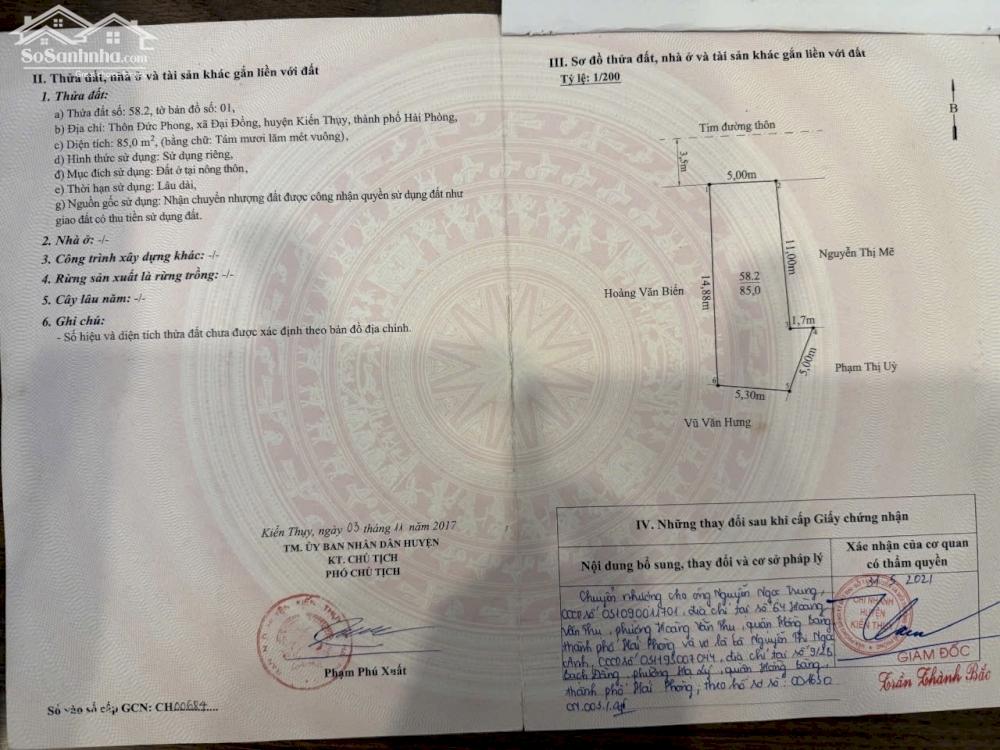 SoSanhnha.com
II. Thửa đất, nhà ở và tài sản khác gắn liền với đất
1. Thửa đất:
a) Thửa đất số: 58.2, tờ bản đồ số: 01,
b) Địa chỉ: Thôn Đức Phong, xã Đại Đồng, huyện Kiến Thụy, thành phố Hải Phòng,
c) Diện tích: 85,0 m², (bằng chữ: Tám mươi lăm mét vuông),
d) Hình thức sử dụng: Sử dụng riêng,
đ) Mục đích sử dụng: Đất ở tại nông thôn,
e) Thời hạn sử dụng: Lâu dài,
g) Nguồn gốc sử dụng: Nhận chuyển nhượng đất được công nhận quyền sử dụng đất như
giao đất có thu tiền sử dụng đất.
2. Nhà ở: -/-
3. Công trình xây dựng khác: -/-
4. Rừng sản xuất là rừng trồng: -/-
5. Cây lâu năm: -/-
6. Ghi chú:
- Số hiệu và diện tích thửa đất chưa được xác định theo bản đồ địa chính.
Kiến Thụy, ngày 03 tháng 11 năm 2017
TM. ỦY BAN NHÂN DÂN HUYỆN
KT. CHỦ TỊCH
PHÓ CHỦ TỊCH
Phạm Phú Xuất
Số vào sổ cấp GCN: CH00684....
III. Sơ đồ thửa đất, nhà ở và tài sản khác gắn liền với đất
Tỷ lệ: 1/200
B
Tim đường thôn
3,5m
5,00m
1
2
11,00m
Nguyễn Thị Mẽ
Hoàng Văn Biển
14,88m
58.2
85,0
3
1,7m
4
5,00m
Phạm Thị Uỷ
6
5,30m
5
Vũ Văn Hưng
IV. Những thay đổi sau khi cấp Giấy chứng nhận
Nội dung bổ sung, thay đổi và cơ sở pháp lý
Xác nhận của cơ quan
có thẩm quyền
Chuyển nhượng cho ông Nguyễn Ngọc Trung,
CCCD số 031090011701, địa chỉ tại số 64 Hoàng
Văn Thụ, phường Hoàng Văn Thụ, quận Hồng Bàng
thành phố Hải Phòng và vợ là bà Nguyễn Thị Ngọc
Anh, CCCD số 031195007044, địa chỉ tại số 9/2B
Bạch Đằng, phường Hạ Lý, quận Hồng Bàng,
thành phố Hải Phòng, theo hồ sơ số: 001650
CN.003.
31 5 2021
CHI NHÁNH
HUYỆN
KIẾN THỤY
GIÁM ĐỐC
Trần Thành Bắc